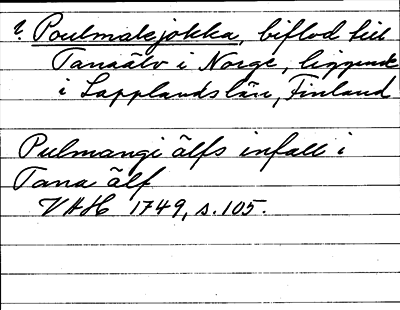 1. Poulmaksjokka, biflod till
Tanaälv i Norge, liggende
i Lapplands län, Finland
Pulmangi älfs infall i
Tana älf
VAH 1749, s. 105.